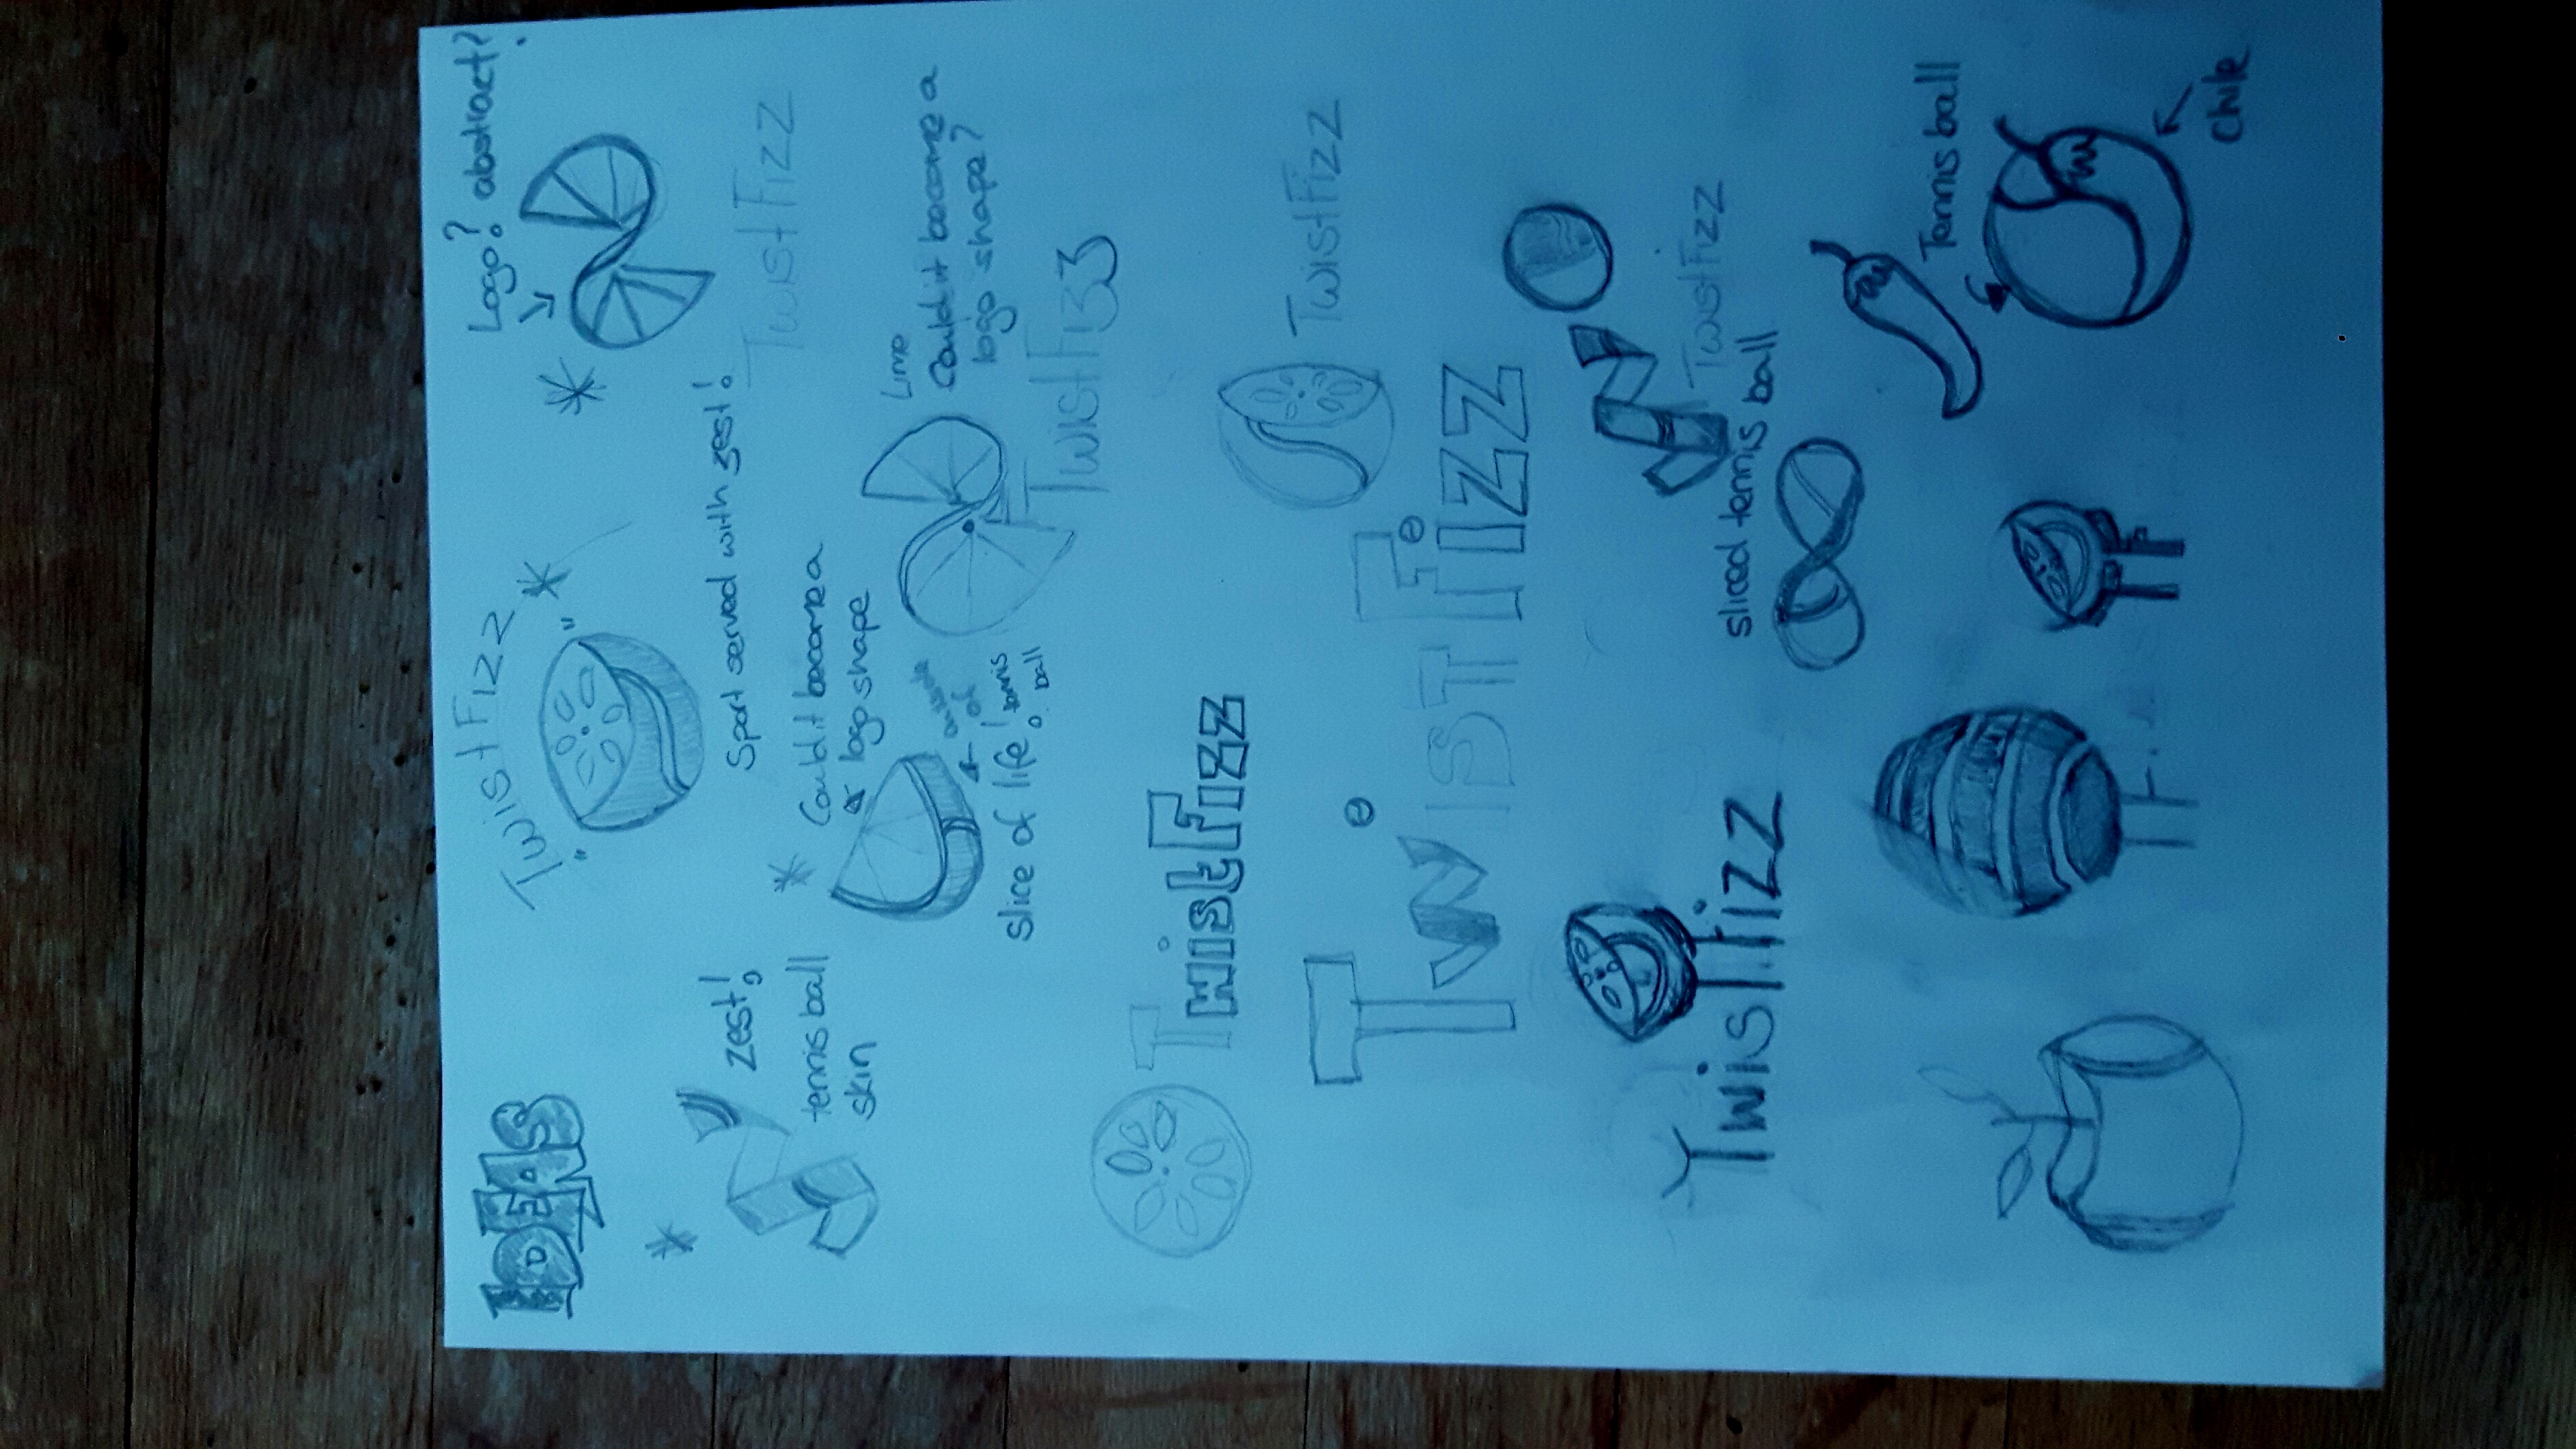 IDEAS
TwistFizz
Logo? abstract?
zest!
tennis ball
skin
Sport served with zest!
TwistFizz
Could it become a
logo shape
Lime
Could it become a
logo shape?
outside
of
tennis
ball
slice of life!
TwistFizz
TwistFizz
TwistFizz
TwistFizz
TwistFizz
TwistFizz
sliced tennis ball
Tennis ball
chile